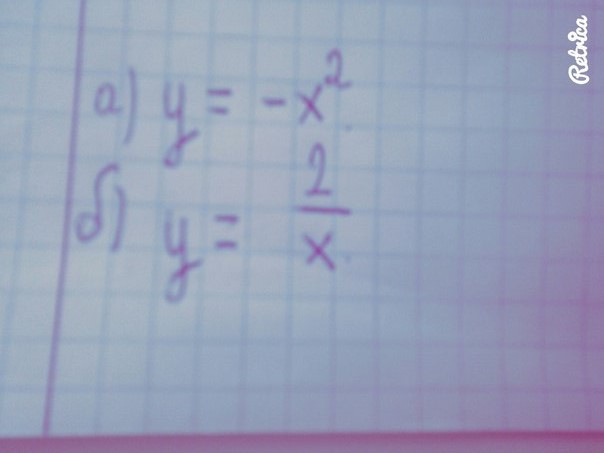 а) y = -x²
б) y = 2/x
Retrica